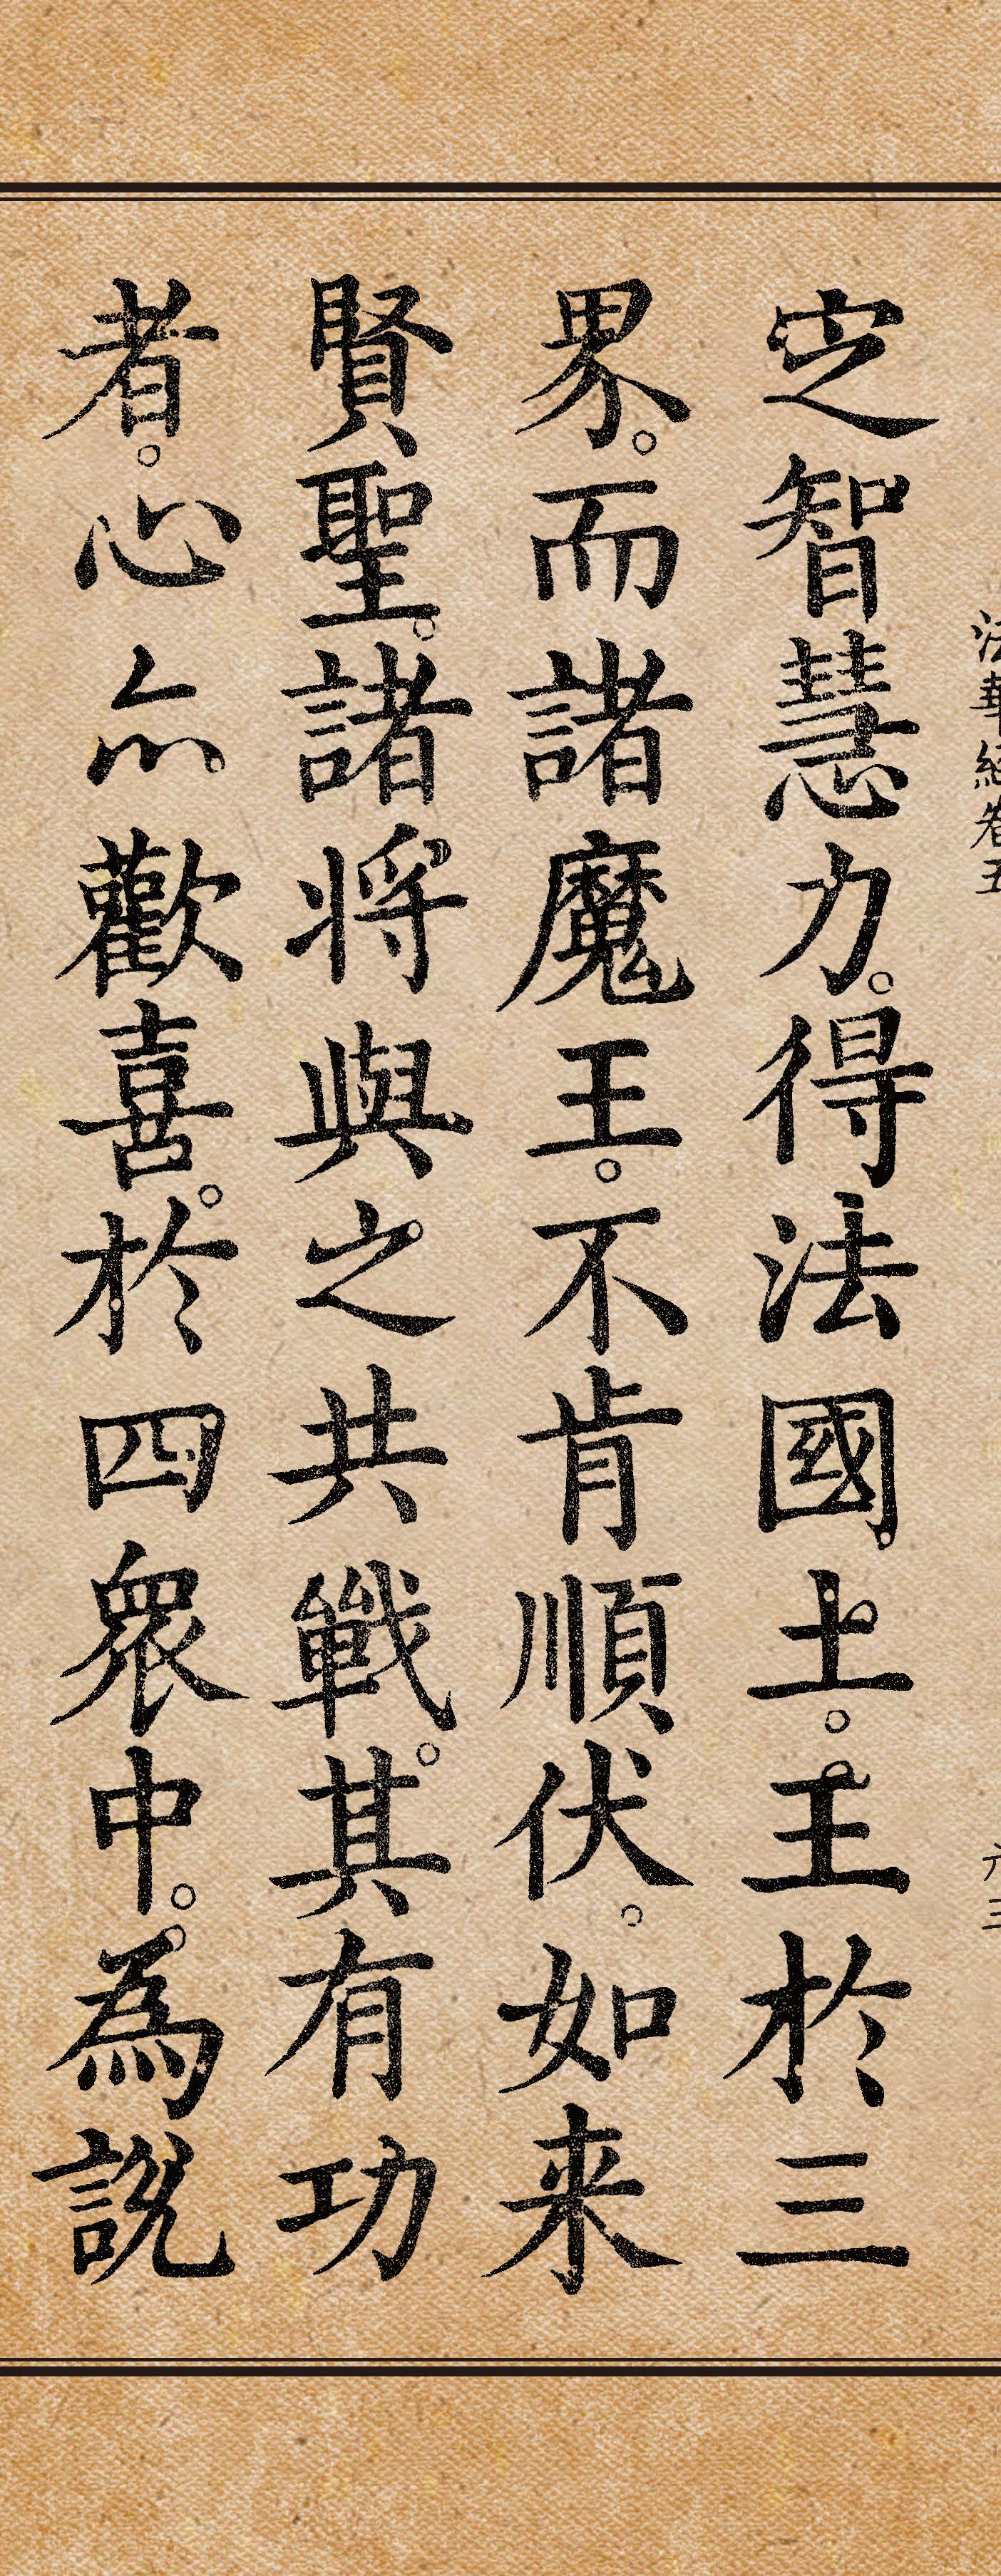 法華經卷五
六三
㝎智慧力。得法國土。王於三
界。而諸魔王。不肯順伏。如来
賢聖。諸将與之共戰。其有功
者。心亦歡喜。於四衆中。為說